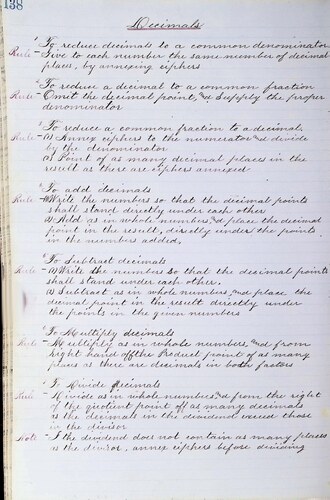 138
Decimals
To reduce decimals to a common denominator
Rule - Give to each number the same number of decimal
places, by annexing ciphers
To reduce a decimal to a common fraction
Rule - Omit the decimal point, and Supply the proper
denominator
To reduce a common fraction to a decimal
Rule - (1) Annex ciphers to the numerator and divide
by the denominator
(2) Point of as many decimal places in the
result as there are ciphers annexed
To add decimals
Rule - (1) Write the numbers so that the decimal points
shall stand directly under each other
(2) Add as in whole numbers, and place the decimal
point in the result, directly under the points
in the numbers added.
To Subtract decimals
Rule - (1) Write the numbers so that the decimal points
shall stand under each other.
(2) Subtract as in whole numbers, and place the
decimal point in the result directly under
the points in the given numbers
To Multiply decimals
Rule - Multiply as in whole numbers, and from
right hand of the Product point of as many
places as there are decimals in both factors
To Divide decimals
Rule - Divide as in whole numbers, and from the right
of the quotient point off as many decimals
as the decimals in the dividend those
in the divisor
Note - If the dividend does not contain as many places
as the divisor, annex ciphers before dividing